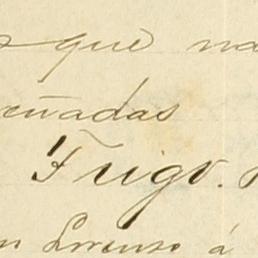 que na
eñadas
Trigo.
n Lorenzo á